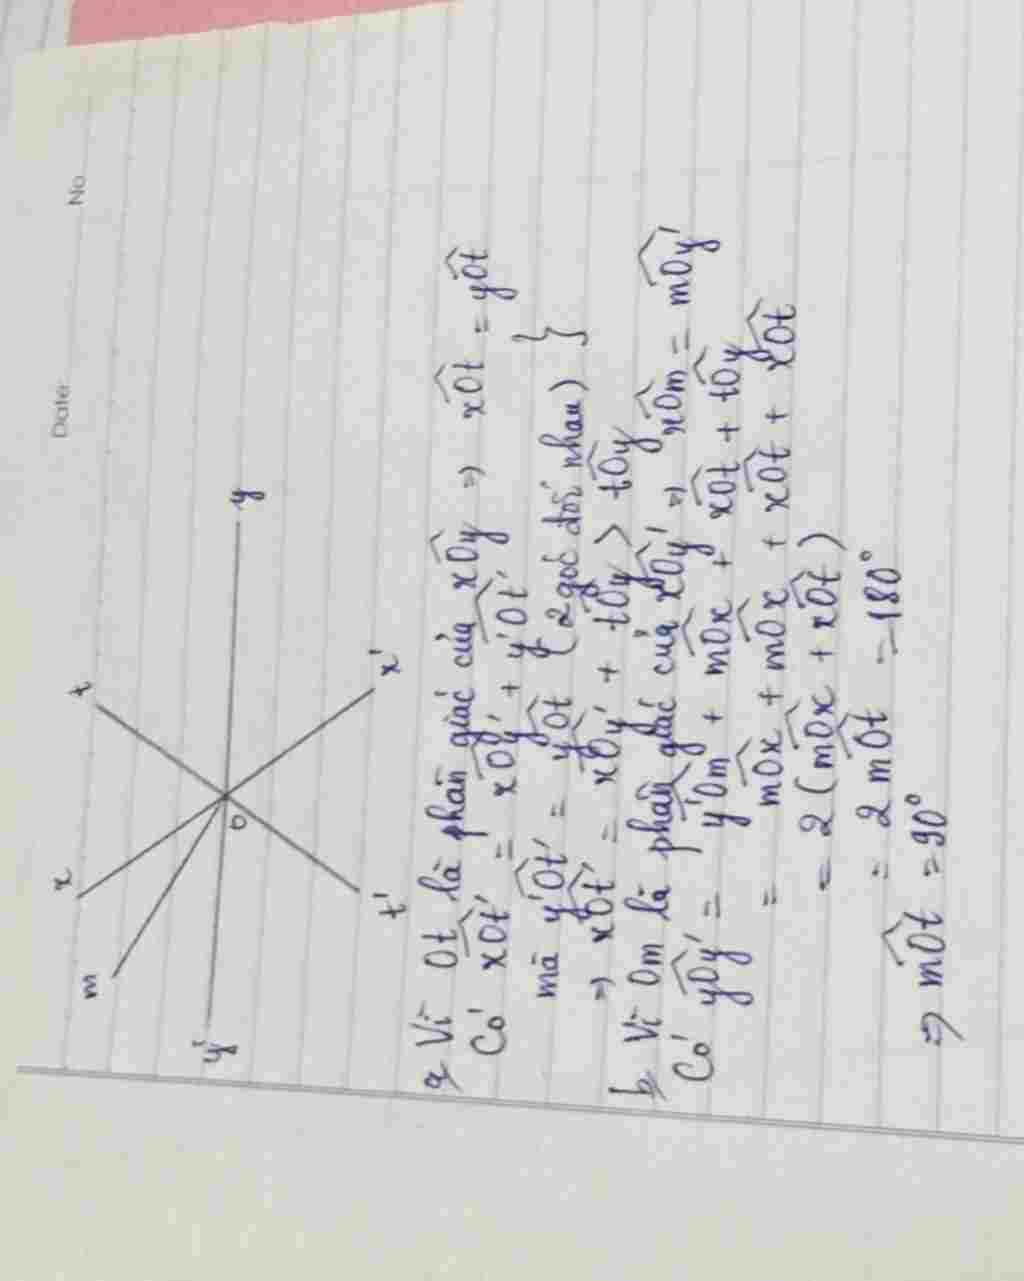 Date: No
x t
m
y' O y
t' x'
a, Vì Ot là phân giác của \widehat{xOy} => \widehat{xOt} = \widehat{yOt}
Có \widehat{xOt'} = \widehat{xOy'} + \widehat{y'Ot'}
mà \widehat{y'Ot'} = \widehat{yOt} (2 góc đối nhau) }
=> \widehat{xOt'} = \widehat{xOy'} + \widehat{tOy} > \widehat{tOy}
b, Vì Om là phân giác của \widehat{xOy'} => \widehat{xOm} = \widehat{mOy'}
Có \widehat{yOy'} = \widehat{y'Om} + \widehat{mOx} + \widehat{xOt} + \widehat{tOy}
= \widehat{mOx} + \widehat{mOx} + \widehat{xOt} + \widehat{xOt}
= 2 (\widehat{mOx} + \widehat{xOt})
= 2 \widehat{mOt} = 180°
=> \widehat{mOt} = 90°